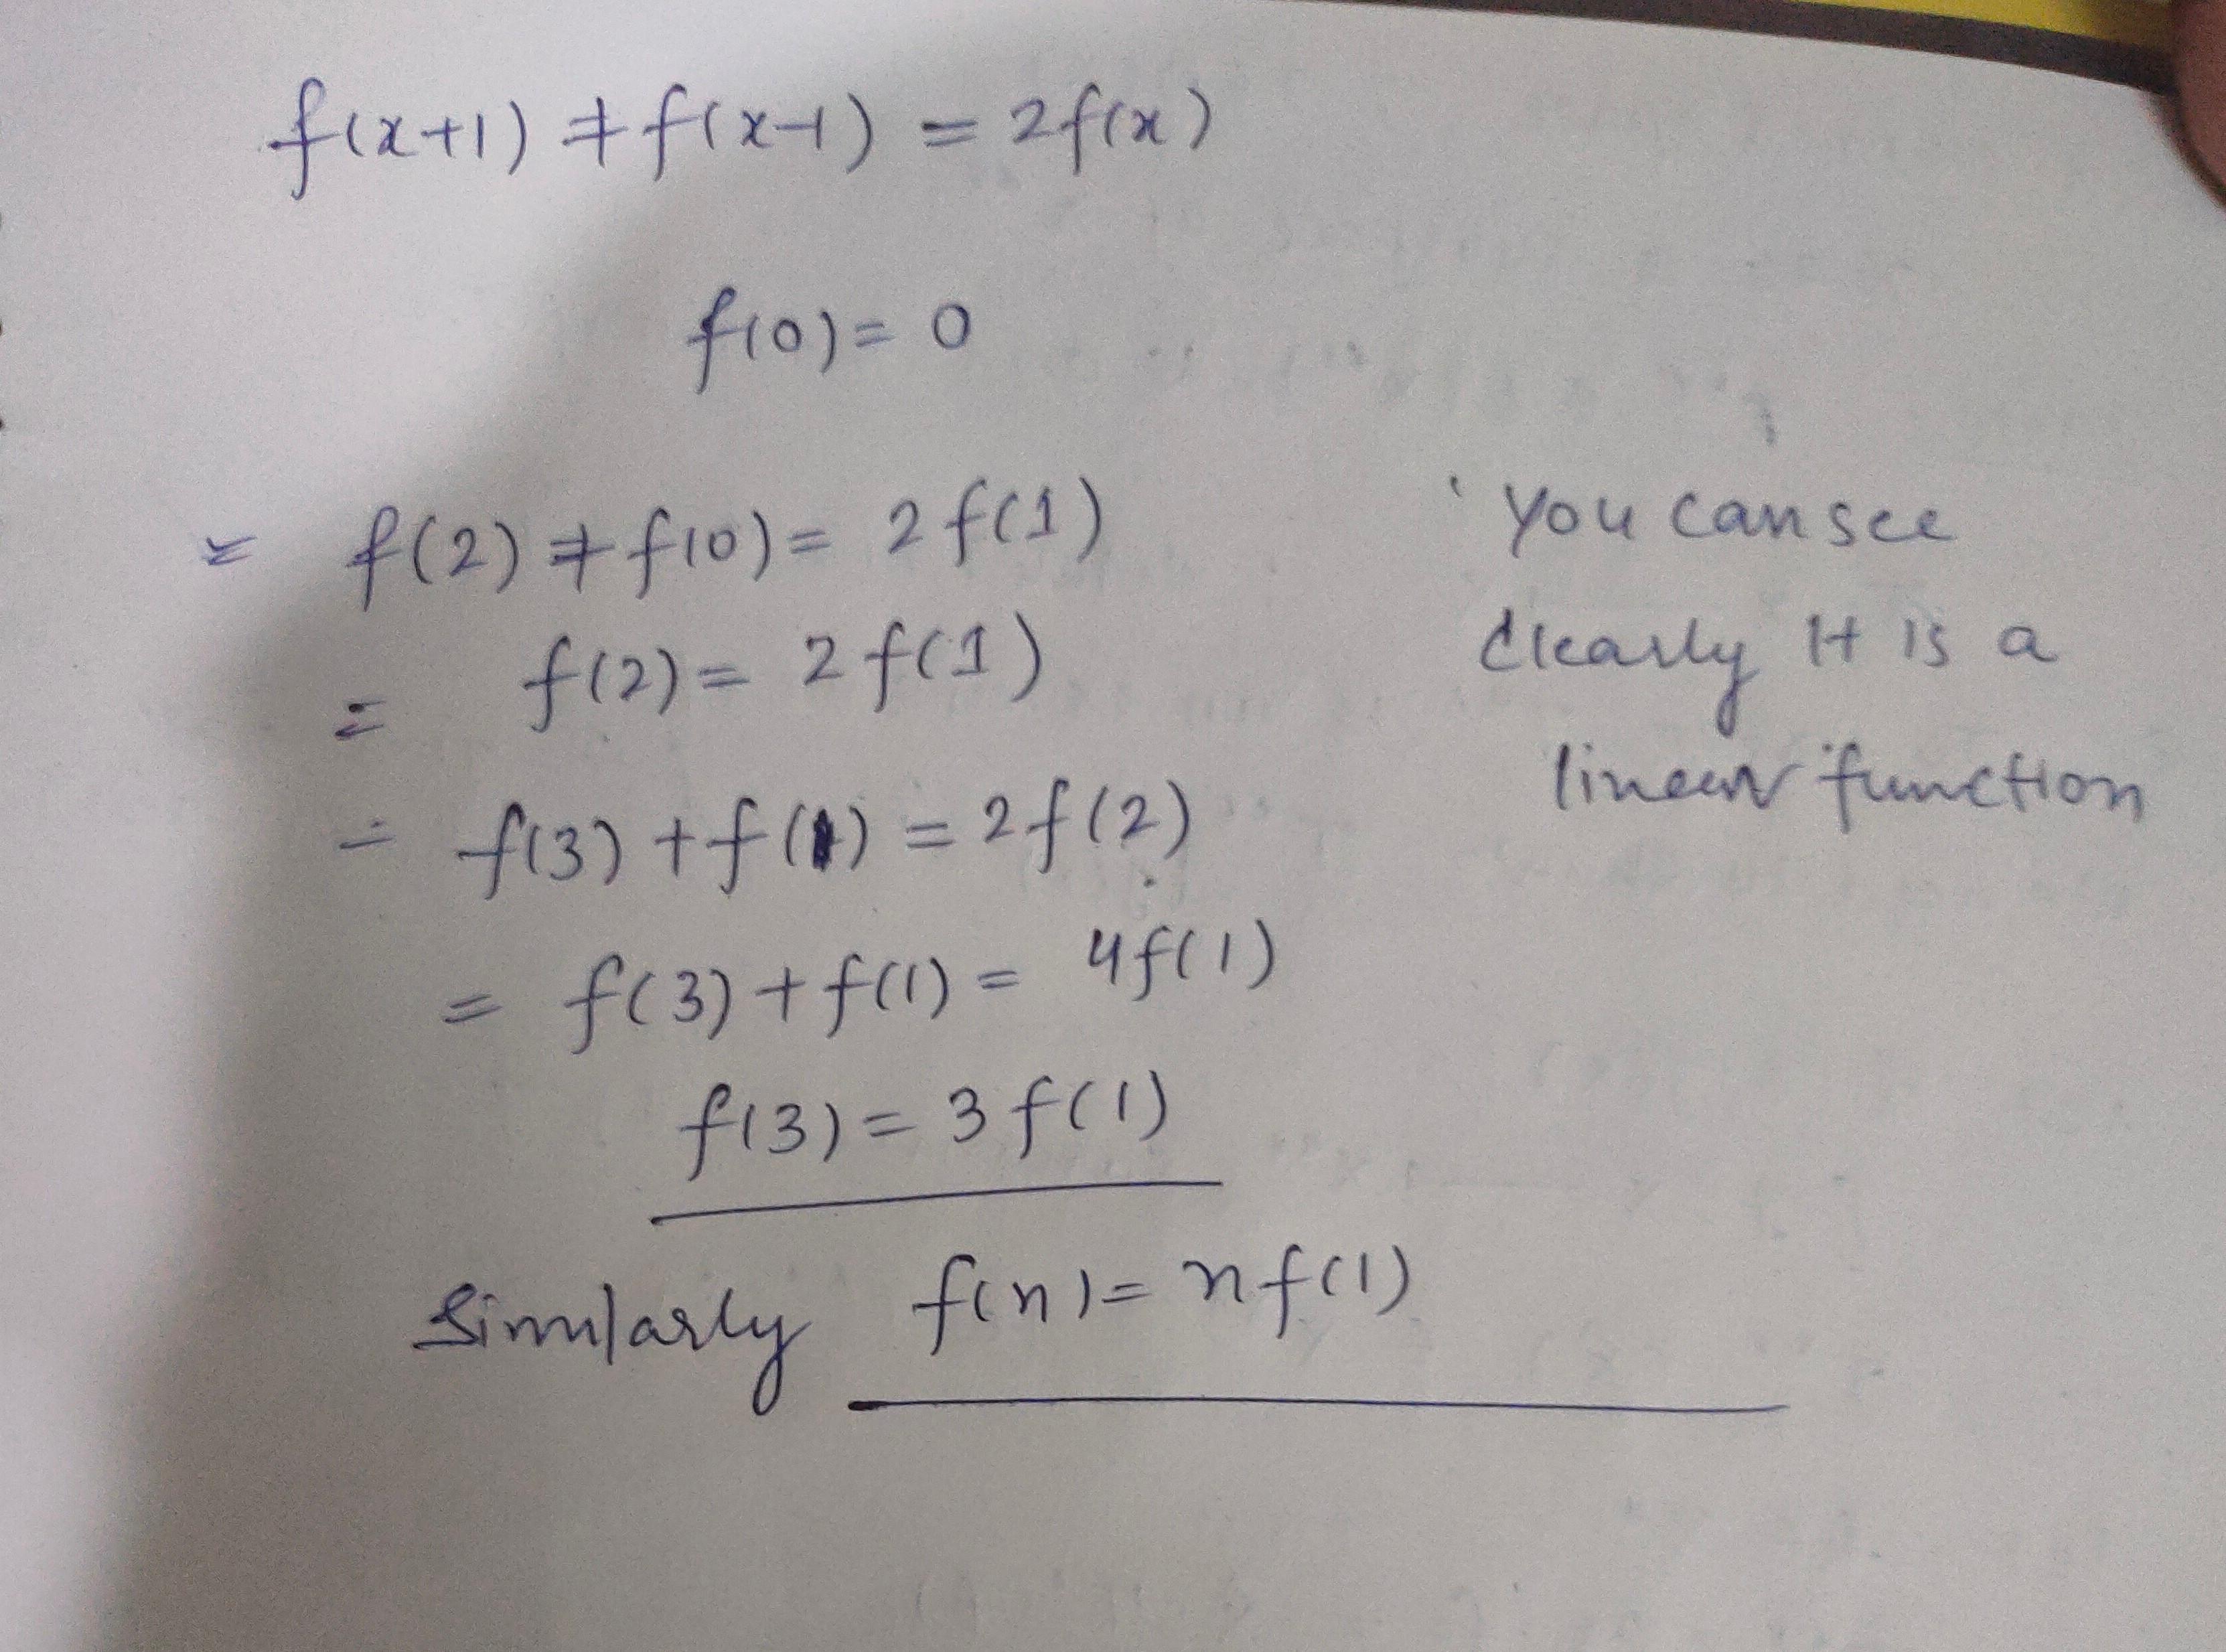 f(x+1) + f(x-1) = 2f(x)
f(0) = 0
= f(2) + f(0) = 2f(1)
= f(2) = 2f(1)
= f(3) + f(1) = 2f(2)
= f(3) + f(1) = 4f(1)
f(3) = 3f(1)
Similarly f(n) = nf(1)
You can see
clearly it is a
linear function